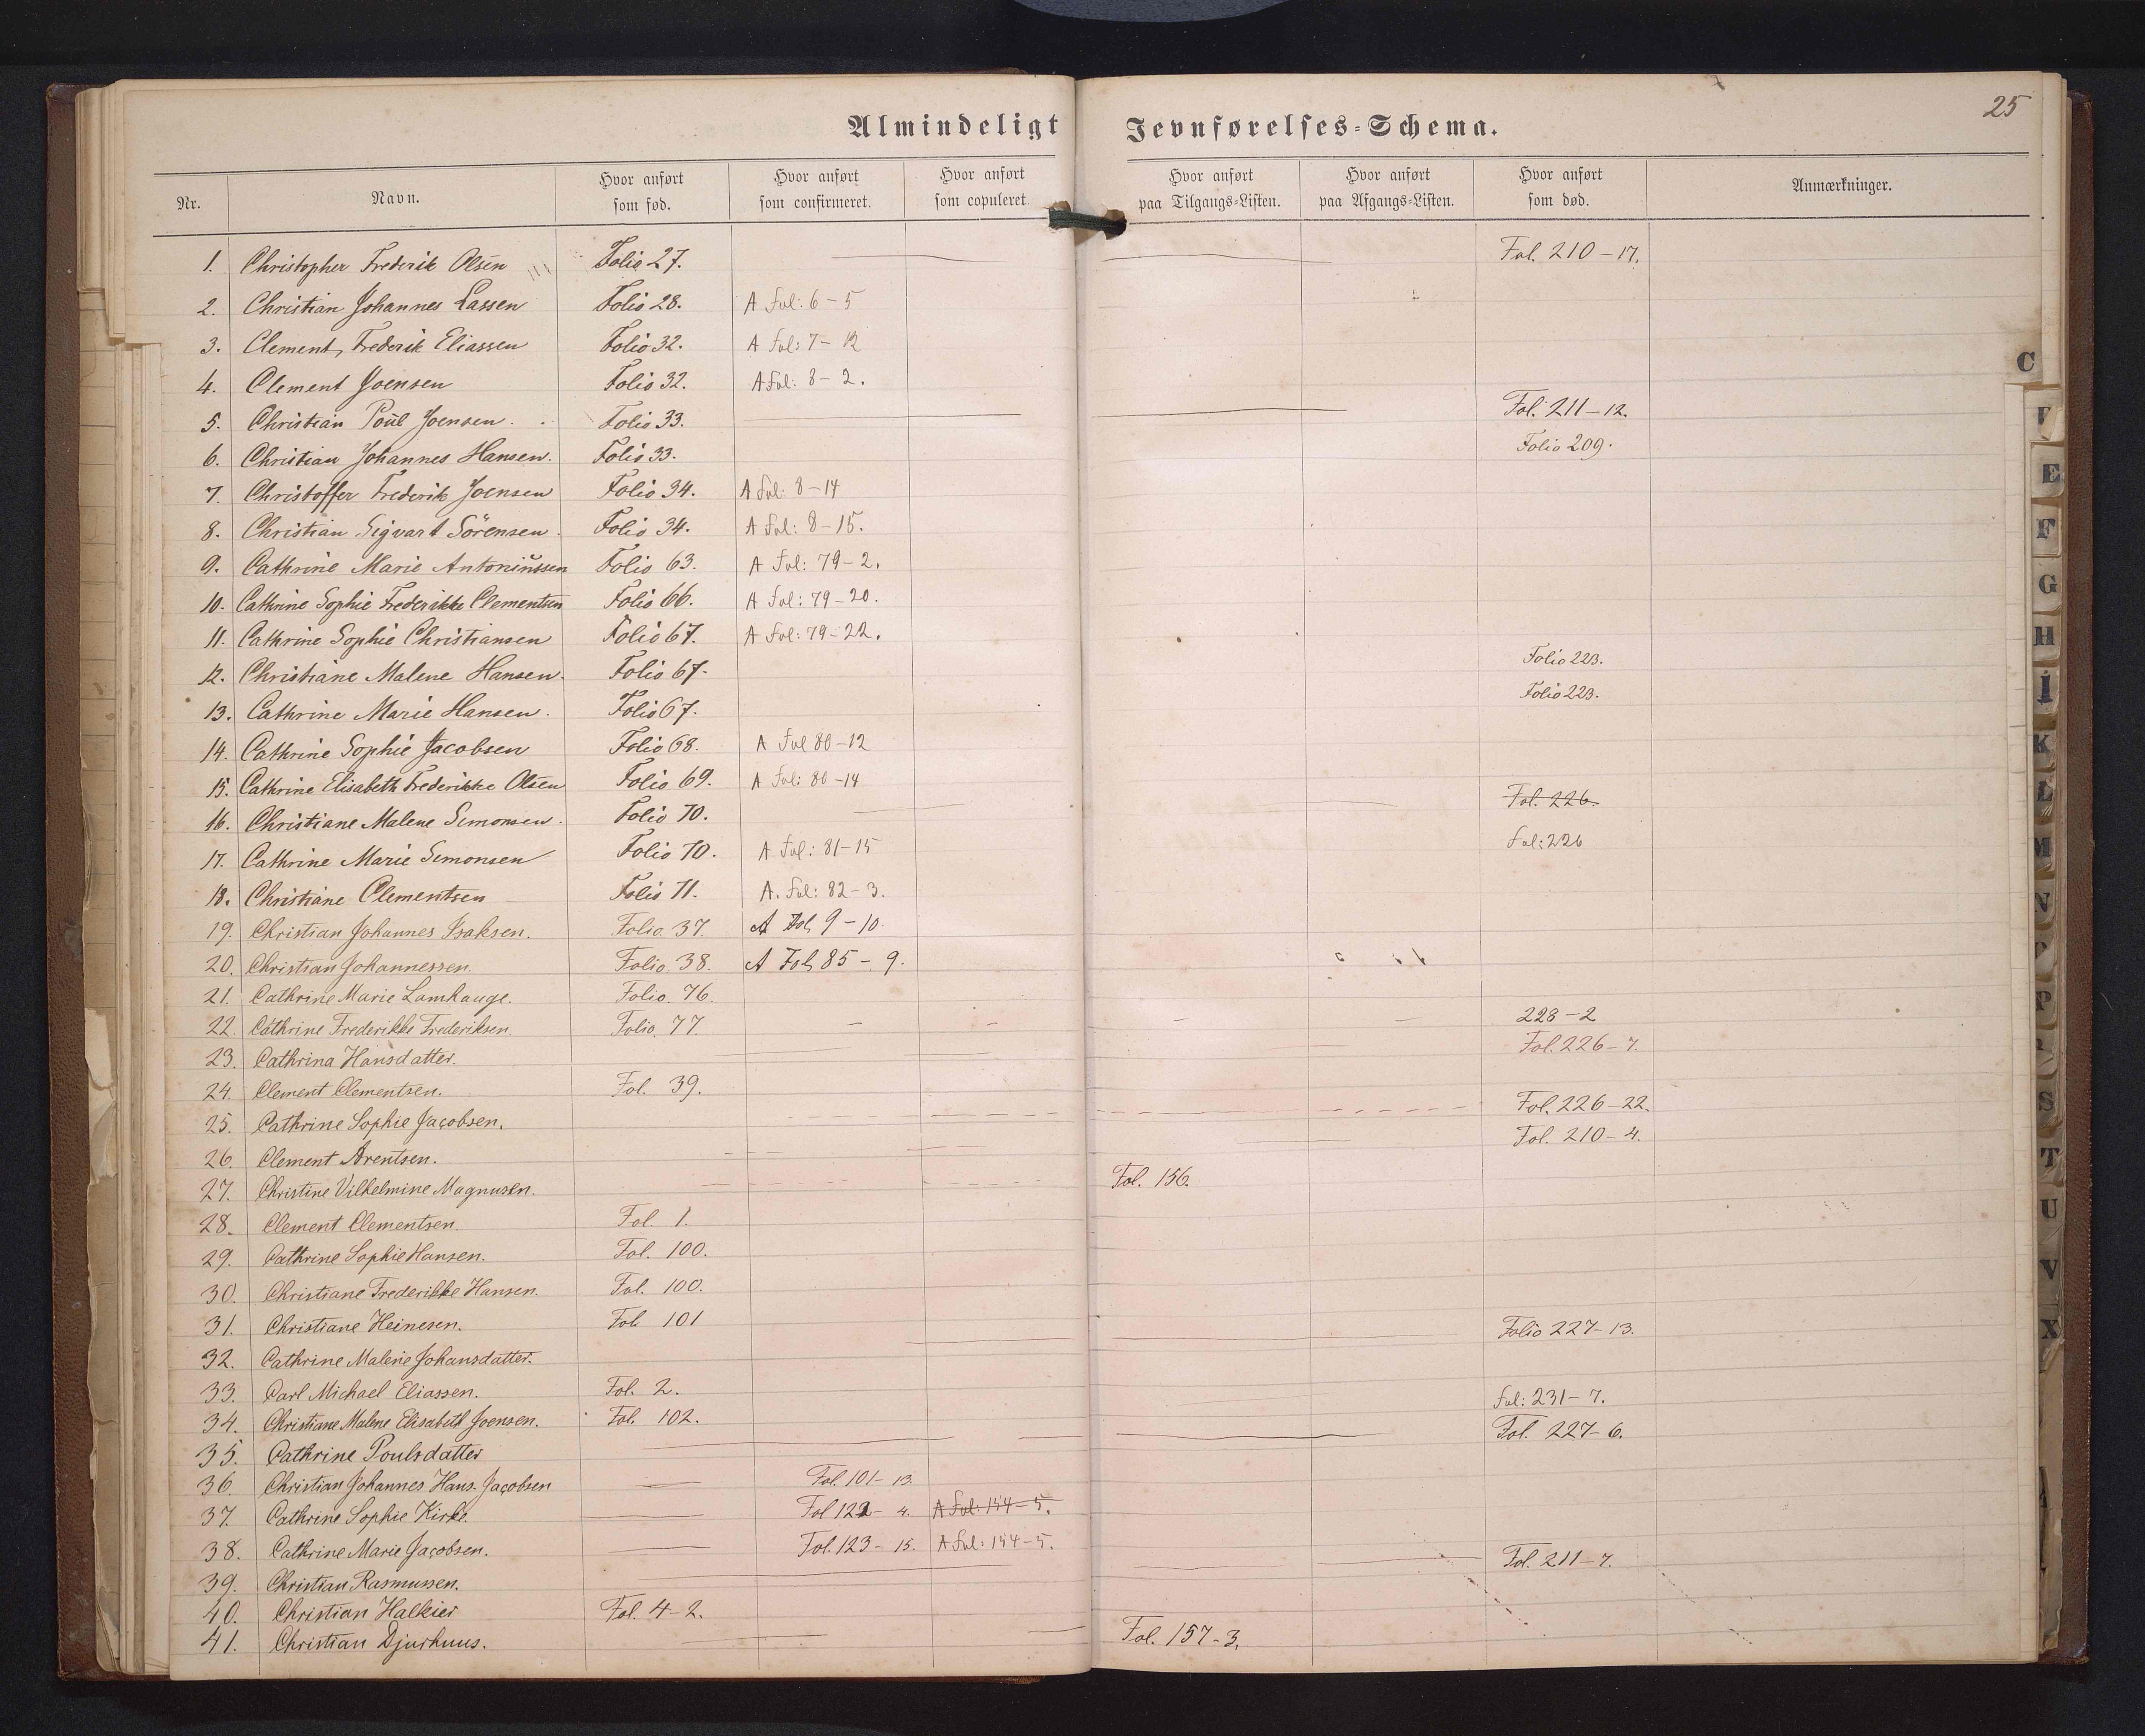 25
Almindeligt Jevnførelses-Schema.
Nr. Navn. Hvor anført som fød. Hvor anført som confirmeret. Hvor anført som copuleret Hvor anført paa Tilgangs-Listen. Hvor anført paa Afgangs-Listen. Hvor anført som død. Anmærkninger.
1. Christopher Frederik Olsen Folio 27. Fol. 210-17.
2. Christian Johannes Lassen Folio 28. A Fol: 6-5
3. Clement, Frederik Eliassen Folio 32. A Fol: 7-12
4. Clement Joensen Folio 32. A Fol: 8-2.
5. Christian Poul Joensen. Folio 33. Fol. 211-12.
6. Christian Johannes Hansen. Folio 33. Folio 209.
7. Christoffer Frederik Joensen Folio 34. A Fol: 8-14
8. Christian Sigvart Sörensen. Folio 34. A Fol: 8-15.
9. Cathrine Marie Antoniussen Folio 63. A Fol: 79-2.
10. Cathrine Sophie Frederikke Clementsen Folio 66. A Fol: 79-20.
11. Cathrine Sophie Christiansen Folio 67. A Fol: 79-22.
12. Christiane Malene Hansen. Folio 67. Folio 223.
13. Cathrine Marie Hansen. Folio 67. Folio 223.
14. Cathrine Sophie Jacobsen Folio 68. A Fol 80-12
15. Cathrine Elisabeth Frederikke Olsen Folio 69. A Fol: 80-14
16. Christiane Malene Simonsen. Folio 70. Fol. 226.
17. Cathrine Marie Simonsen Folio 70. A Fol: 81-15 Fol: 226
18. Christiane Clementsen Folio 71. A. Fol: 82-3.
19. Christian Johannes Isaksen. Folio. 37. A Fol, 9-10.
20. Christian Johannessen. Folio. 38. A Fol, 85-9.
21. Cathrine Marie Lamhauge. Folio. 76.
22. Cathrine Frederikke Frederiksen. Folio. 77. 228-2
23. Cathrina Hansdatter. Fol. 226-7.
24. Clement Clementsen. Fol. 39.
25. Cathrine Sophie Jacobsen. Fol. 226-22.
26. Clement Arentsen. Fol. 210-4.
27. Christine Vilhelmine Magnusen. Fol. 156.
28. Clement Clementsen Fol. 1.
29. Cathrine Sophie Hansen. Fol. 100.
30. Christiane Frederikke Hansen. Fol. 100.
31. Christiane Heinesen. Fol. 101
32. Cathrine Malene Johansdatter. Folio 227-13.
33. Carl Michael Eliassen. Fol. 2.
34. Christiane Malene Elisabeth Joensen. Fol. 102. Fol: 231-7.
35. Cathrine Poulsdatter Fol. 227-6.
36. Christian Johannes Hans. Jacobsen Fol. 101-13.
37. Cathrine Sophie Kirke. Fol 122-4. A Fol: 154-5.
38. Cathrine Marie Jacobsen. Fol. 123-15. A Fol: 154-5.
39. Christian Rasmussen. Fol. 211-7.
40. Christian Halkier Fol. 4-2.
41. Christian Djurhuus. Fol. 157-3.
C
E
F
G
H
I
K
L
M
N
P
S
T
U
V
X